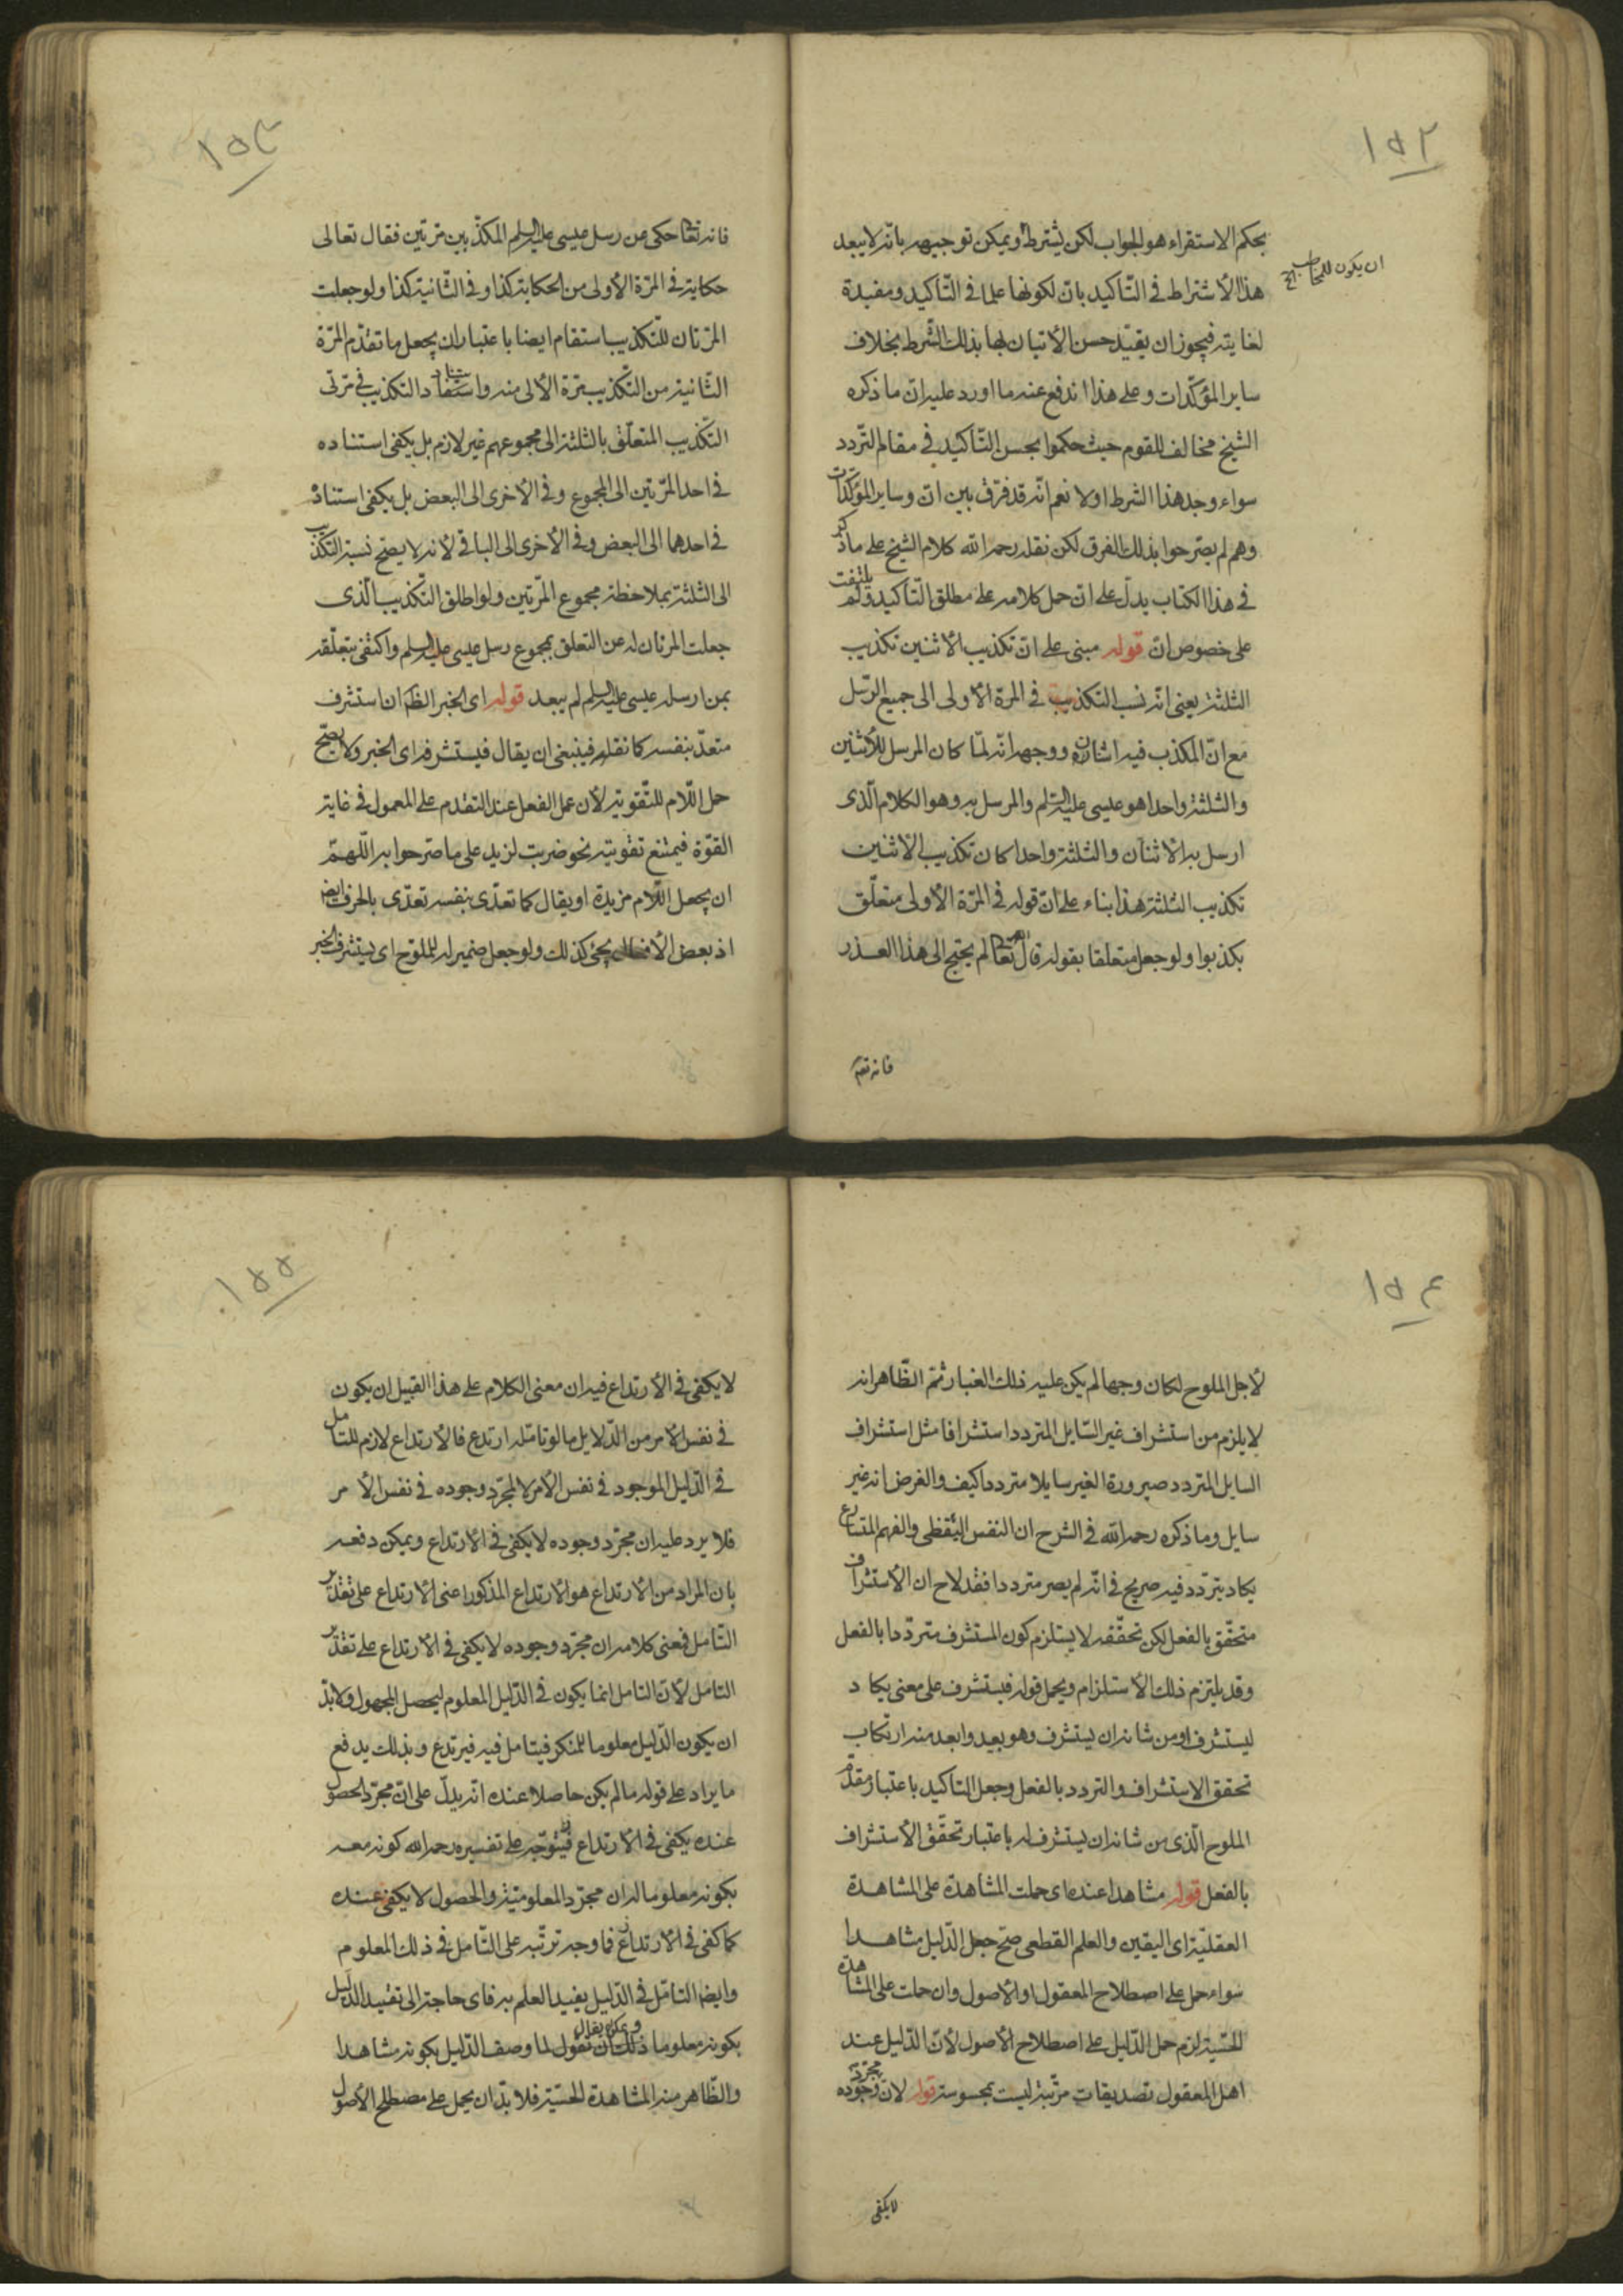 ١٥٢
بحكم الاستقراء هو الجواب لكن يشترط ويمكن توجيهه بانه لا يبعد
ان يكون للمخاطب الخ
هذا الأشتراط فى التّاكيد بانّ لكونها علما فى التّاكيد ومفيدة
لغايته فيجوز ان يقيّد حسن الأتيان بها بذلك الشّرط بخلاف
ساير المؤكّدات وعلى هذا اندفع عنه ما اورد عليه انّ ما ذكره
الشيخ مخالف للقوم حيث حكموا بحسن التّاكيد فى مقام التّردد
سواء وجد هذا الشرط اولا نعم انّه قد فرّق بين انّ وساير المؤكّدات
وهم لم يصّرحوا بذلك الفرق لكن نقله رحمه الله كلام الشيخ على ما ذكر
فى هذا الكتاب يدلّ على انّ حمل كلامه على مطلق التّاكيد ولم يلتفت
على خصوص انّ قوله مبنى على انّ تكذيب الاثنين تكذيب
الثلثة يعنى انّه نسب التكذيب فى المرة الأولى الى جميع الرّسل
مع انّ المكذب فيه اثنان ووجهه انّه لمّا كان المرسل للأثنين
والثلثة واحدا هو عيسى عليه السّلم والمرسل به وهو الكلام الّذى
ارسل به الأثنان والثلثة واحدا كان تكذيب الأثنين
تكذيب الثلثة هذا بناء على انّ قوله فى المرّة الأولى متعلّق
بكذبوا ولو جعل متعلقا بقوله قال الله تعا لم يحتج الى هذا العذر
فانه تعم
١٥٣
فانه تعا حكى عن رسل عيسى عليه السلم المكذّبين مرّتين فقال تعالى
حكاية فى المرّة الأولى من الحكاية كذا وفى الثّانية كذا ولو جعلت
المرّتان للتّكذيب استقام ايضا باعتبار ان يجعل ما تقدّم المرّة
الثّانية من التّكذيب مرّة الأولى منه واستناد التكذيب فى مرّتى
التّكذيب المتعلّق بالثلثة الى مجموعهم غير لازم بل يكفى استناده
فى احد المرّتين الى المجموع وفى الأخرى الى البعض بل يكفى استناده
فى احدهما الى البعض وفى الأخرى الى الباقى لأنه لا يصّح نسبة التكذيب
الى الثلثة بملاحظة مجموع المرّتين ولو اطلق التّكذيب الّذى
جعلت المرتان له عن التعلق بمجموع رسل عيسى عليه السلم واكتفى بتعلّقه
بمن ارسله عيسى عليه السلم لم يبعد قوله اى الخبر الظّ ان استشرف
متعدّ بنفسه كما نقله فينبغى ان يقال فيستشرفه اى الخبر ولا يصّح
حمل اللّام للتّقوية لأن عمل الفعل عند التقدم على المعمول فى غاية
القوّة فيمتنع تقويته نحو ضربت لزيد على ما صرّحوا به اللّهمّ
ان يجعل اللّام مزيدة او يقال كما تعدّى بنفسه تعدّى بالحرف ايض
اذ بعض الأفعال يجئ كذلك ولو جعل ضمير له للملوّح اى يستشرف الخبر
١٥٤
لأجل الملوح لكان وجها لم يكن عليه ذلك الغبار ثمّ الظّاهر انه
لا يلزم من استشراف غير السّايل المتردد استشرافا مثل استشراف
السايل المتردد صيرورة الغير سايلا مترددا كيف والغرض انه غير
سايل وما ذكره رحمه الله فى الشرح ان النفس اليقظى والفهم المتسارع
يكاد يتردّد فيه صريح فى انّه لم يصر مترددا فقد لاح ان الأستشراف
متحقّق بالفعل لكن تحقّقه لا يستلزم كون المستشرف متردّدا بالفعل
وقد يلتزم ذلك الأستلزام ويحمل قوله فيستشرف على معنى يكاد
ليستشرف اومن شانه ان يستشرف وهو بعيد وابعد منه ارتكاب
تحقق الاستشراف والتردد بالفعل وجعل التاكيد باعتبار مقدّم
الملوح الّذى من شانه ان يستشرف له باعتبار تحقّق الأستشراف
بالفعل قوله مشاهدا عنده اى حملت المشاهدة على المشاهدة
العقليّة اى اليقين والعلم القطعى صّح جعل الدّليل مشاهدا
سواء حمل على اصطلاح المعقول او الأصول وان حملت على المشاهدة
الحسّية لزم حمل الدّليل على اصطلاح الأصول لأنّ الدّليل عند
اهل المعقول تصديقات مرتّبة ليست بمحسوسة قوله لان مجرّد وجوده
لا يكفى
١٥٥
لا يكفى فى الأرتداع فيه ان معنى الكلام على هذا القبيل ان يكون
فى نفس الأمر من الدّلايل ما لو تامّله ارتدع فالأرتداع لازم للتامل
فى الدّليل الموجود فى نفس الأمر لا لمجرّد وجوده فى نفس الأمر
فلا يرد عليه ان مجرّد وجوده لا يكفى فى الأرتداع ويمكن دفعه
بان المراد من الأرتداع هو الأرتداع المذكور اعنى الأرتداع على تقدير
التّامل فمعنى كلامه ان مجرّد وجوده لا يكفى فى الأرتداع على تقدير
التامل لأنّ التامل انما يكون فى الدّليل المعلوم ليحصل المجهول ولا بدّ
ان يكون الدّليل معلوما للمنكر فيتامل فيه فيرتدع وبذلك يدفع
ما يراد على قوله ما لم يكن حاصلا عنده انّه يدلّ على انّ مجرّد الحصول
عنده يكفى فى الأرتداع فيتوّجه على تفسيره رحمه الله كونه معه
بكونه معلوما له ان مجرّد المعلوميّة والحصول لا يكفى عنده
كما كفى فى الأرتداع فما وجه ترتّبه على التّامل فى ذلك المعلوم
وايضا التامّل فى الدّليل يفيد العلم به فاى حاجة الى تقييد الدّليل
بكونه معلوما ويمكن ان يقال ذلك ان تقول لما وصف الدّليل بكونه مشاهدا
والظّاهر منه المشاهدة الحسّية فلا بدّ ان يحمل على مصطلح الأصول